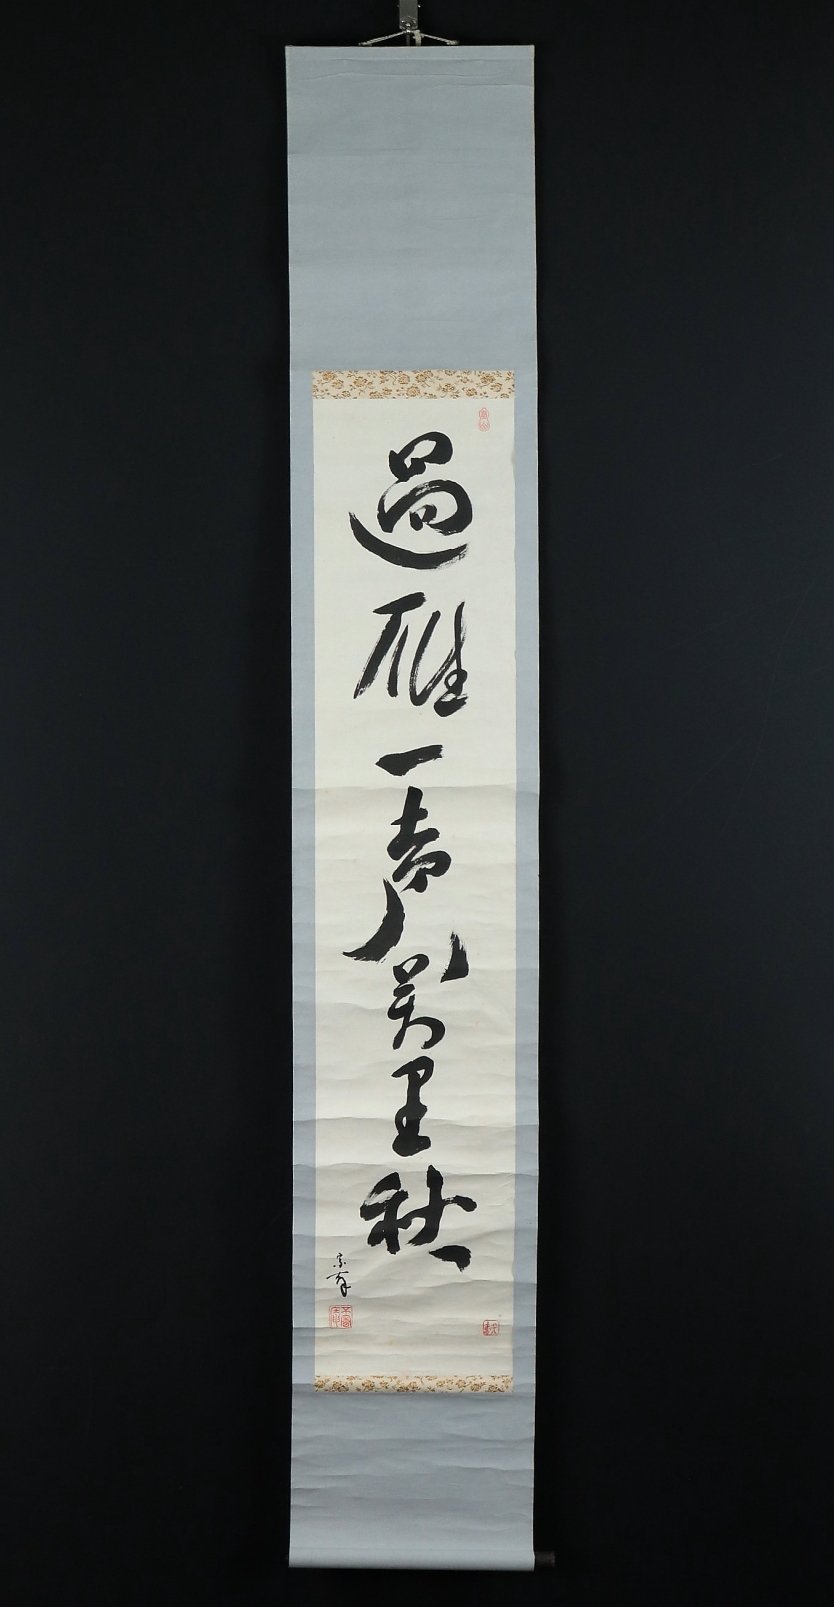 過雁一声万里秋